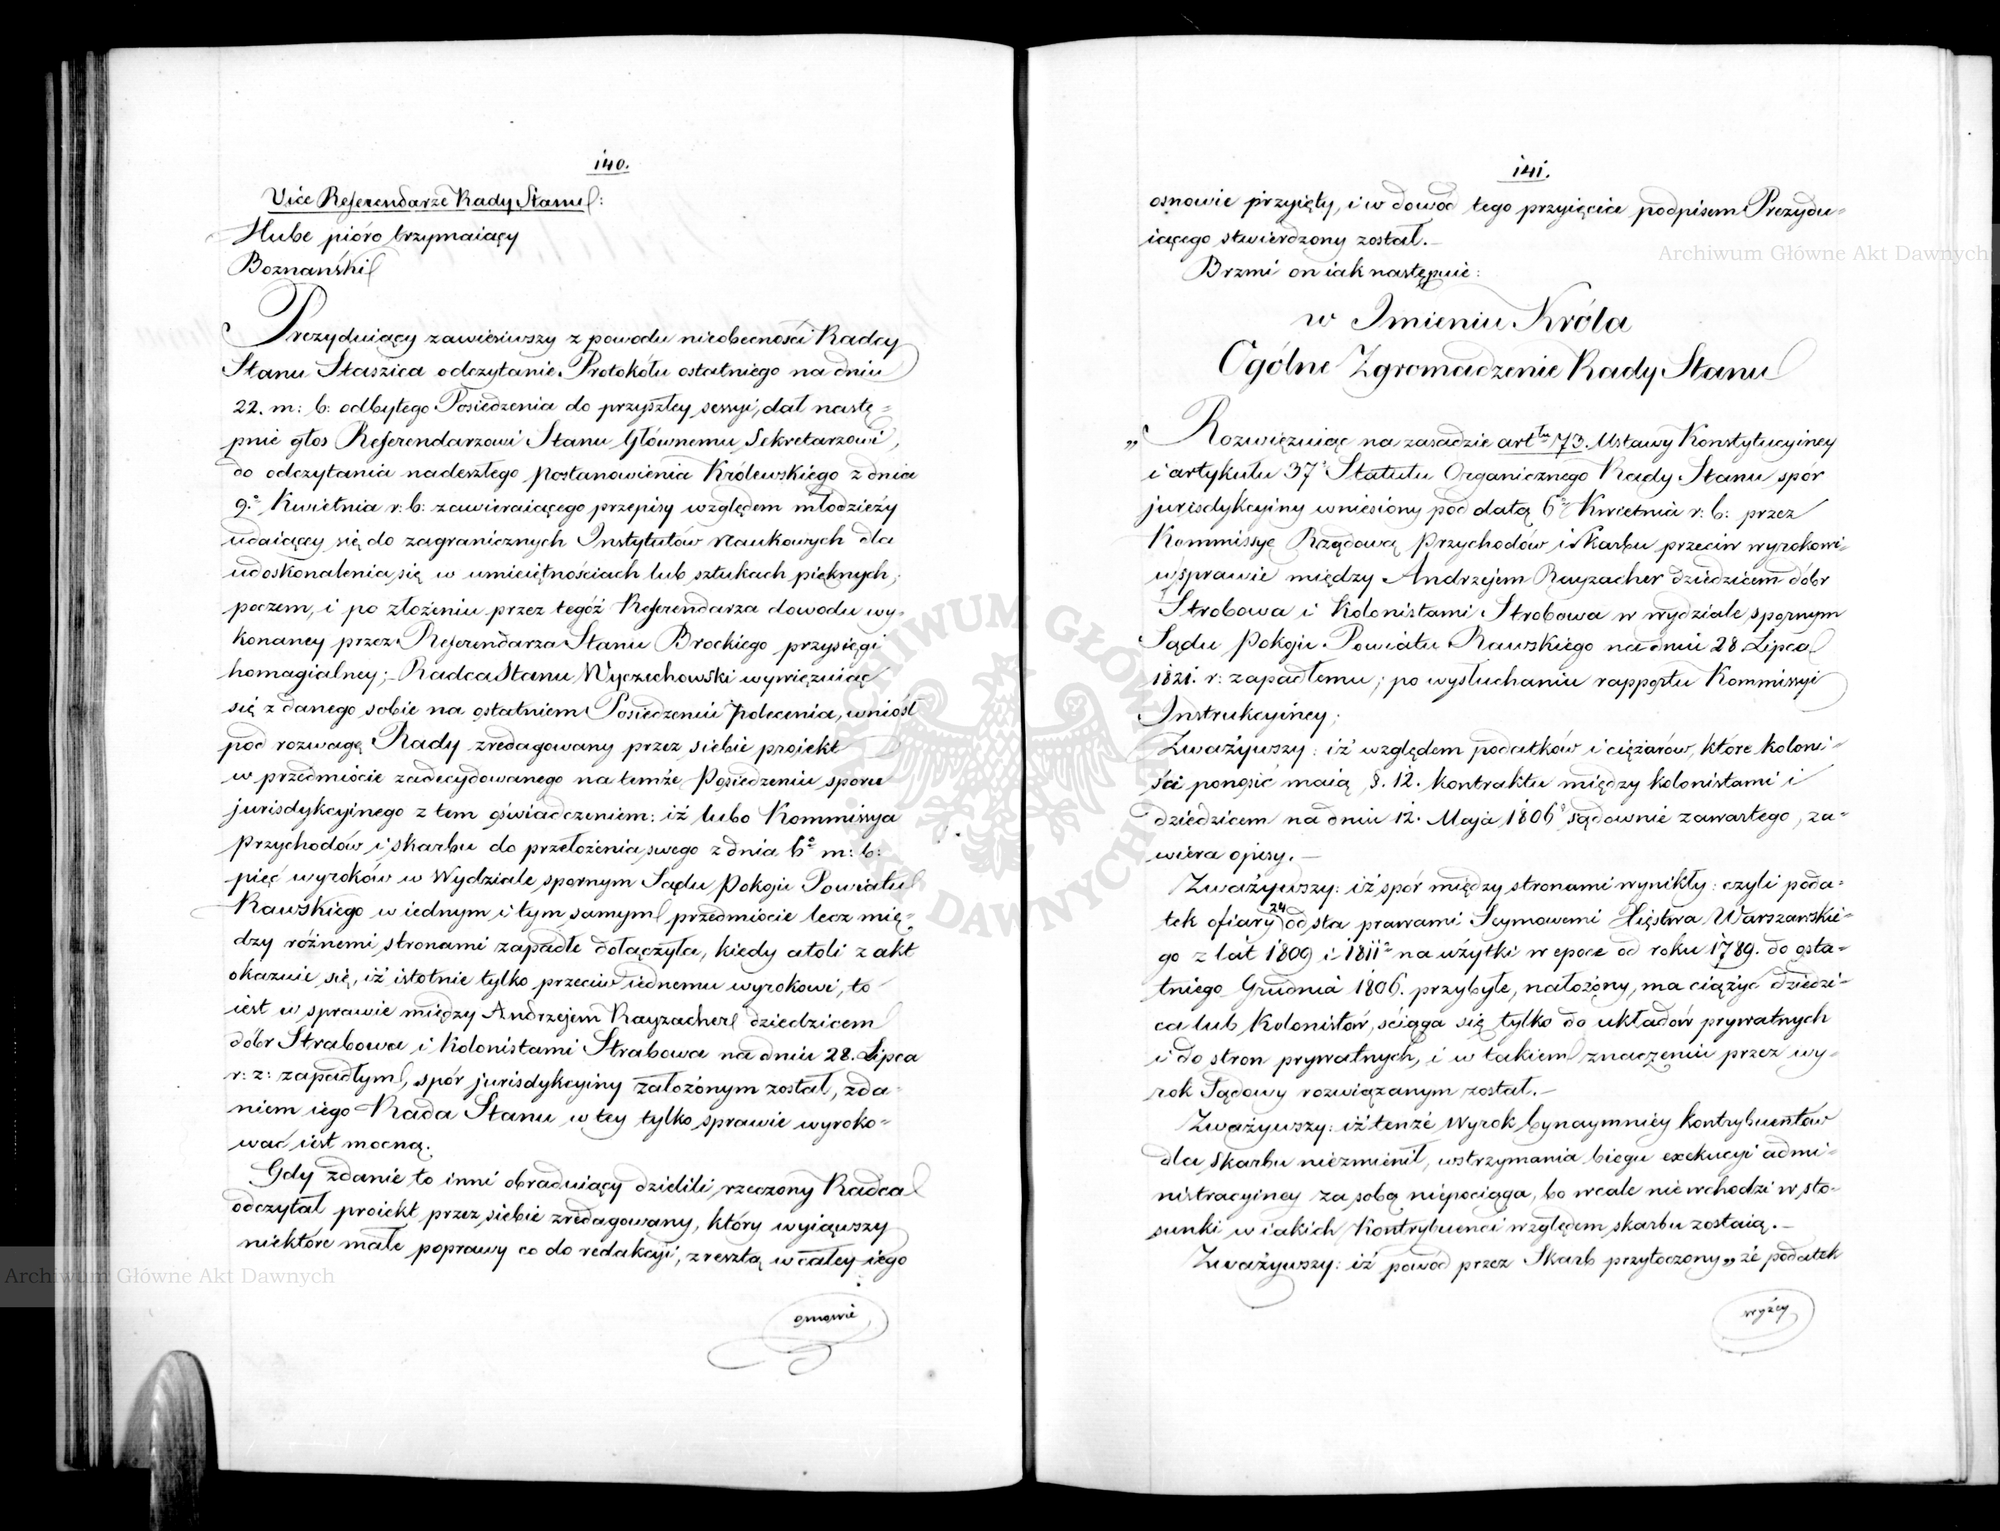 140.
Vice Referendarze Rady Stanu:
Hube pióro trzymaiący
Boznański
Prezyduiący zawiesiwszy z powodu nieobecności Radcy
Stanu Staszica odczytanie Protokółu ostatniego na dniu
22. m: b: odbytego Posiedzenia do przyszłey sessyi, dał nastę=
pnie głos Referendarzowi Stanu Głównemu Sekretarzowi,
do odczytania nadeszłego postanowienia Królewskiego z dnia
9.º Kwietnia r: b: zawieraiącego przepisy względem młodzieży
udaiącey się do zagranicznych Instytutów Naukowych dla
udoskonalenia się w umieiętnościach lub sztukach pięknych;
poczem, i po złożeniu przez tegóż Referendarza dowodu wy=
konaney przez Referendarza Stanu Brockiego przysięgi
homagialney; Radca Stanu Wyczechowski wywięzuiąc
się z danego sobie na ostatniem Posiedzeniu polecenia, wniósł
pod rozwagę Rady zredagowany przez siebie proiekt
w przedmiocie zadecydowanego na temże Posiedzeniu sporu
jurisdykcyinego z tem oświadczeniem: iż lubo Kommissya
Przychodów i Skarbu do przełożenia swego z dnia 6º m: b:
pięć wyroków w Wydziale spornym Sądu Pokoju Powiatu
Rawskiego w iednym i tym samym przedmiocie lecz mię=
dzy różnemi stronami zapadłe dołączyła, kiedy atoli z akt
okazuie się, iż istotnie tylko przeciw iednemu wyrokowi, to
iest w sprawie między Andrzejem Rayzacher dziedzicem
dóbr Strabowa i Kolonistami Strabowa na dniu 28. Lipca
r: z: zapadłym, spór jurisdykcyiny założonym został, zda=
niem iego Rada Stanu w tey tylko sprawie wyroko=
wać iest mocną.
Gdy zdanie to inni obraduiący dzielili, rzeczony Radca
odczytał proiekt przez siebie zredagowany, który wyiąwszy
niektóre małe poprawy co do redakcyi, zresztą w całey iego
osnowie
141.
osnowie przyięty, i w dowód tego przyięcia podpisem Prezydu=
iącego stwierdzony został.—
Brzmi on iak następuie:
w Imieniu Króla
Ogólne Zgromadzenie Rady Stanu
„Rozwięzuiąc na zasadzie art:łu 73. Ustawy Konstytucyiney
i artykułu 37º Statutu Organicznego Rady Stanu spór
jurisdykcyiny wniesiony pod datą 6º Kwietnia r: b: przez
Kommissyę Rządową Przychodów i Skarbu przeciw wyrokowi=
w sprawie między Andrzejem Rayzacher dziedzicem dóbr
Strobowa i Kolonistami Strobowa w wydziale spornym
Sądu Pokoju Powiatu Rawskiego na dniu 28 Lipca
1821. r: zapadłemu; po wysłuchaniu rapportu Kommissyi
Instrukcyiney;
Zważywszy: iż względem podatków i ciężarów, które koloni=
ści ponosić maią §. 12. kontraktu między kolonistami i
dziedzicem na dniu 12. Maja 1806º sądownie zawartego, za=
wiera opisy.—
Zważywszy: iż spór między stronami wynikły: czyli poda=
tek ofiary 24 od sta prawami Seymowemi Xięstwa Warszawskie=
go z lat 1809 i 1811º na użytki w epoce od roku 1789. do osta=
tniego Grudnia 1806. przybyłe, nałożony, ma ciążyć dziedzi=
ca lub Kolonistów, ściąga się tylko do układów prywatnych
i do stron prywatnych, i w takiem znaczeniu przez wy=
rok Sądowy rozwiązanym został.—
Zważywszy: iż tenże Wyrok bynaymniey kontrybuentów
dla Skarbu niezmienił, wstrzymania biegu exekucyi admi=
nistracyiney za sobą niepociąga, bo wcale nie wchodzi w sto=
sunki w iakich Kontrybuenci względem skarbu zostaią.—
Zważywszy: iż powód przez Skarb przytoczony „że podatek
wyżey
Archiwum Główne Akt Dawnych
Archiwum Główne Akt Dawnych
ARCHIWUM GŁÓWNE AKT DAWNYCH